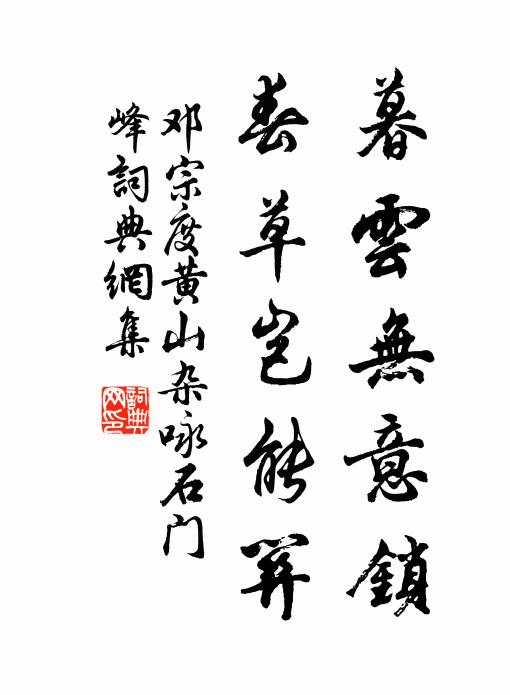 暮雲無意鎖
春草岂能關
邓宗度黄山杂咏石门
峰詞典網集
詞典
网印